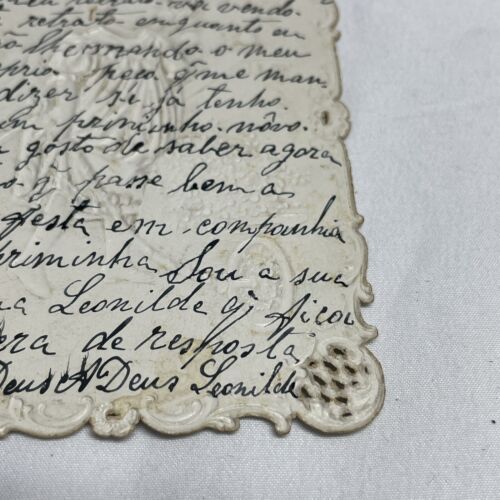 vendo.
retrato emquanto eu
não lhe mando o meu
proprio peco q̃ me man
dizer si já tenho.
um priminho. nôvo.
gosto de saber agora
q̃ passe bem a
festa em. companhia
priminha Sou a sua
Leonilde q̃ ficou
era de resposta
Deus A Deus Leonilde